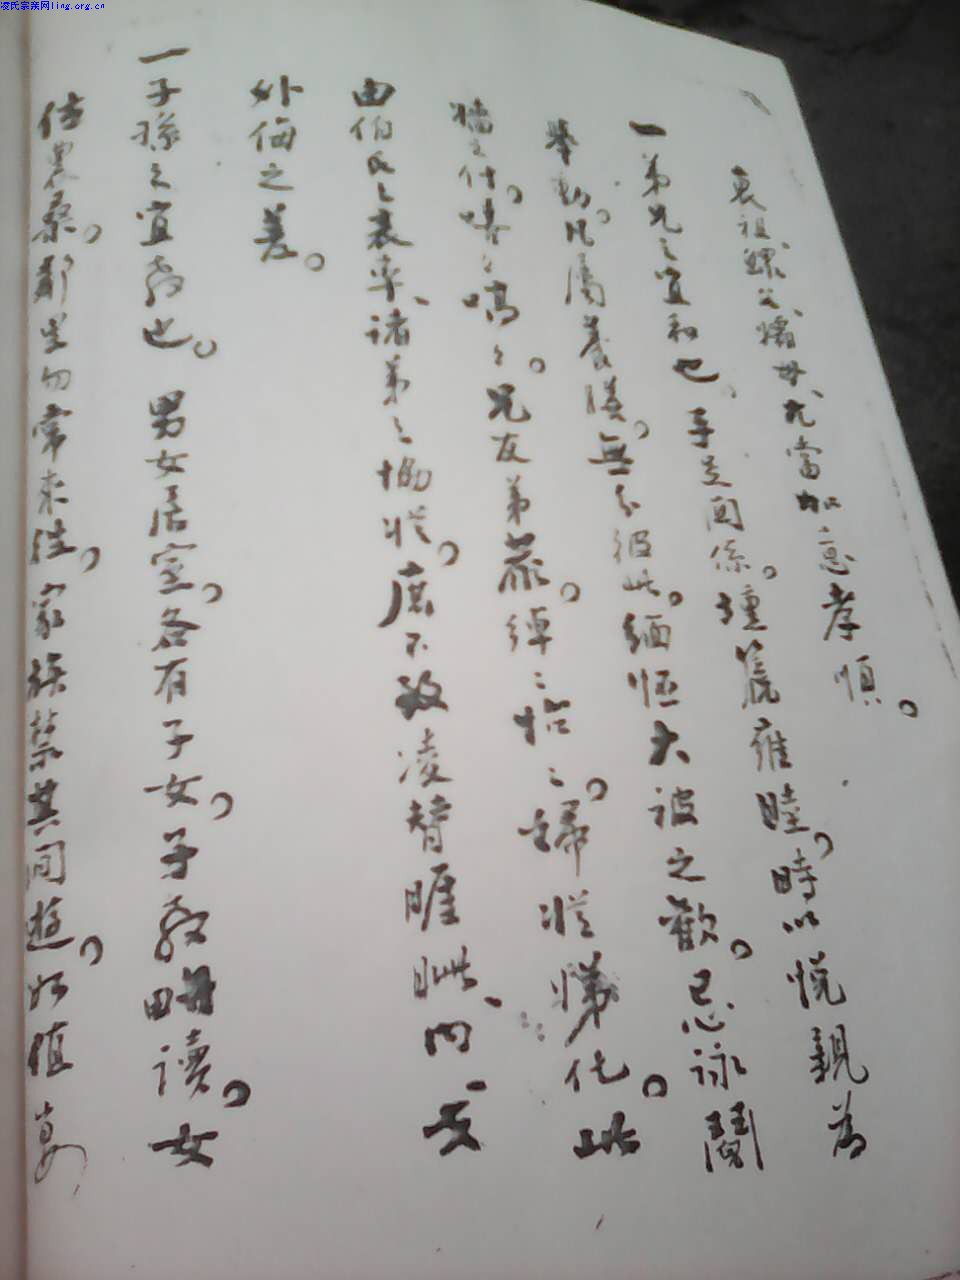 凌氏宗亲网ling.org.cn
衰祖、鰥父、孀母、尤當加意孝順。
一弟兄之宜和也。手足関係。壎箎雍睦。時以悅親為
举动。凡属養膳。無分彼此。緬恒大被之歡。忌咏鬩
墻之什。嗃嗃。兄友弟恭。綽ミ怡ミ。婦從悌化。此
由伯氏之表率、諸弟之協從。庶不致凌替睚眦、内
外侮之羞。
一子孫之宜教也。男女居室。各有子女。子教畊讀。女
農桑。鄰里勿常来往。家族禁其同遊。如值